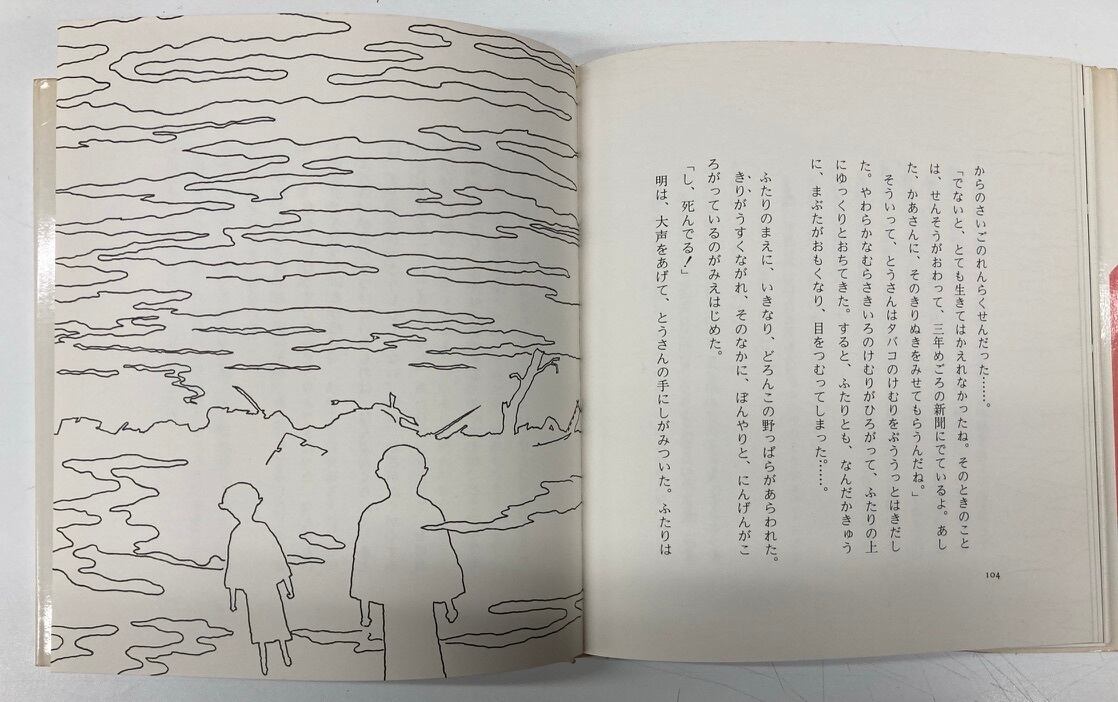 からのさいごのれんらくせんだった……。
「でないと、とても生きてはかえれなかったね。そのときのこと
は、せんそうがおわって、三年めごろの新聞にでているよ。あし
た、かあさんに、そのきりぬきをみせてもらうんだね。」
そういって、とうさんはタバコのけむりをぷううっとはきだし
た。やわらかなむらさきいろのけむりがひろがって、ふたりの上
にゆっくりとおちてきた。すると、ふたりとも、なんだかきゅう
に、まぶたがおもくなり、目をつむってしまった。……。
ふたりのまえに、いきなり、どろんこの野っぱらがあらわれた。
きりがうすくながれ、そのなかに、ぼんやりと、にんげんがこ
ろがっているのがみえはじめた。
「し、死んでる!」
明は、大声をあげて、とうさんの手にしがみついた。ふたりは
104